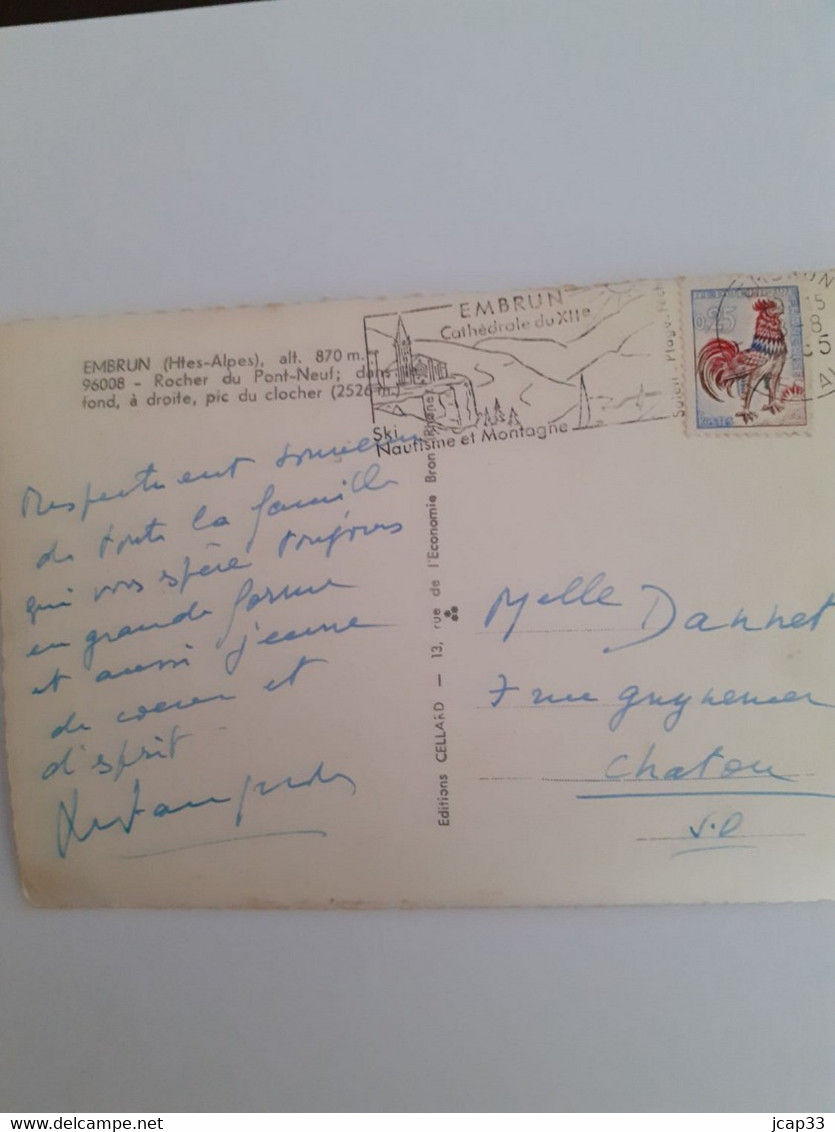 EMBRUN (Htes-Alpes), alt. 870 m.
96008 - Rocher du Pont-Neuf; dans
fond, à droite, pic du clocher (2526 m.)
EMBRUN
Cathédrale du XIIe
Ski
Nautisme et Montagne
Soleil Plage
0,25
POSTES
15
8
5
Respectueux souvenir
de toute la famille
qui vous espère toujours
en grande forme
et aussi jeune
de coeur et
d'esprit
Editions CELLARD — 13, rue de l'Economie Bron (Rhône)
Melle Dannet
7 rue guynemer
Chatou
S.O
delcampe.net
jcap33